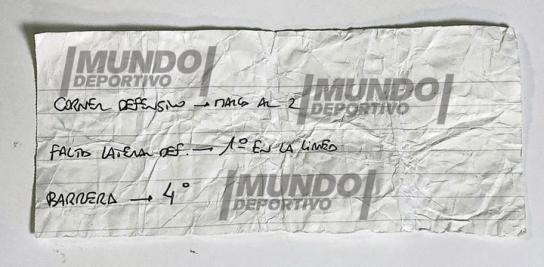 MUNDO
DEPORTIVO
MUNDO
DEPORTIVO
CORNER DEFENSIVO → MARCA AL 2
FALTA LATERAL DEF. → 1º EN LA LINEA
BARRERA → 4º
MUNDO
DEPORTIVO